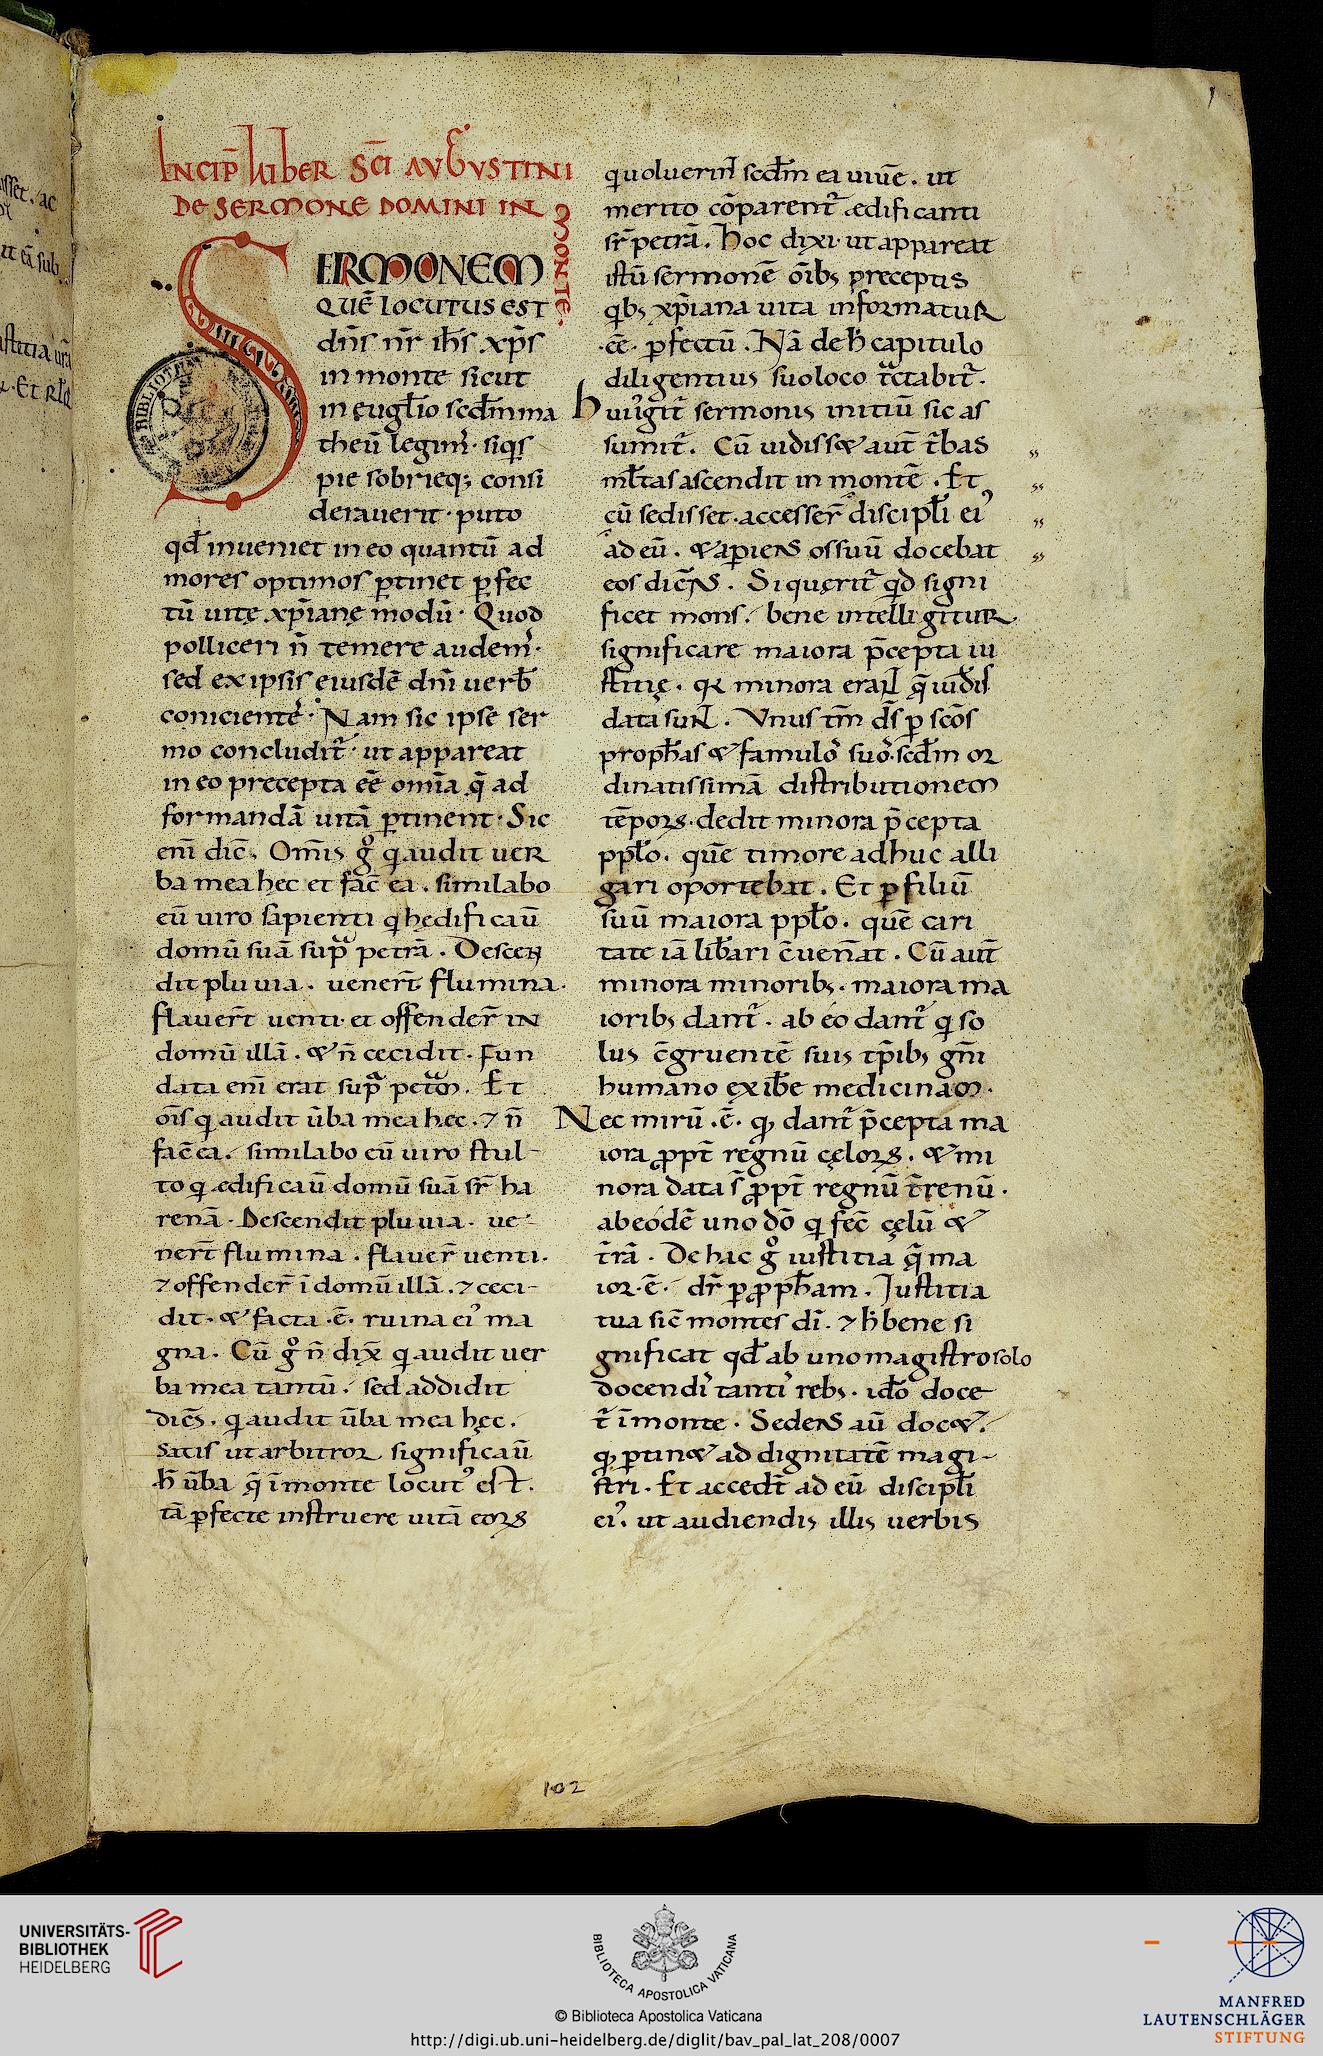 INCIP̄ LIBER S̄CI AVGVSTINI
DE SERMONE DOMINI IN
MONTE.
SERMONEM
QUĒ LOCUTUS EST
dn̄s nr̄ ih̄s xp̄s
in monte sicut
in eugl̄io scd̄m ma
theū legim᾽. siq̄s
pie sobrieq; consi
derauerit. puto
qd̄ inueniet in eo quantū ad
mores optimos ꝑtinet ꝑfec
tū uitę xp̄ianę modū. Quod
polliceri n̄ temere audem᾽.
sed ex ipsis eiusdē dn̄i uerb̄
conicientē. Nam sic ipse ser
mo concludit᾽. ut appareat
in eo precepta eē om̄ia q̄ ad
formandā uitā ꝑtinent. Sic
eni̅ dic̄. Om̄is gͦ q audit uer
ba mea hec et fac̄ ea. similabo
eū uiro sapienti q hedificaū
domū suā supͣ petrā. Descen
dit pluuia. uener̄t flumina.
flauer̄t uenti. et offender̄ in
domū illā. & n̄ cecidit. Fun
data eni̅ erat supͣ petͣm. Et
om̄is q audit ūba mea hec. ⁊ n̄
fac̄ ea. similabo eū uiro stul-
to q ædificaū domū suā sr̄ ha
renā. Descendit pluuia. ue-
ner̄t flumina. flauer̄ uenti.
⁊ offender̄ ī domū illā. ⁊ ceci-
dit. & facta .ē. ruina ei᾽ ma
gna. Cū gͦ n̄ dix̄ q audit uer
ba mea tantū. sed addidit
dicēs. q audit ūba mea hęc.
satis ut arbitror significaū
h̄ ūba q̄ ī monte locut᾽ est.
tā ꝑfecte instruere uitā eoꝝ
qui uoluerint scd̄m ea uiuē. ut
merito cōparent᾽ ædificanti
sr̄ petrā. Hoc dixi. ut appareat
istū sermonē ōibꝫ preceptis
qbꝫ xp̄iana uita informatur
.eē. ꝑfectū. Nā de h̄ capitulo
diligentius suo loco tͣctabit᾽.
Hui᾽ igit᾽ sermonis initiū sic as
sumit᾽. Cū uidiss& aut̄ t᾽bas
ml̄tas ascendit in montē. Et
cū sedisset. accesser̄ discipl̄i ei᾽
ad eū. & apiens os suū docebat
eos dicēs. Si querit᾽ qd signi
ficet mons. bene intelligitur.
significare maiora p̄cepta iu
stitię. qꝛ minora erant q̄ iudis
data sunt. Vnus tm̄ d̄s ꝑ sc̄os
proph̄as & famulo᾽ suo᾽. scd̄m or
dinatissimā distributionem
tēpoꝝ. dedit minora p̄cepta
ppl̄o. quē timore adhuc alli
gari oportebat. Et ꝑ filiū
suū maiora ppl̄o. quē cari
tate iā lib̄ari c̄uen̄at. Cū aut̄
minora minoribꝫ. maiora ma
ioribꝫ dant᾽. ab eo dant᾽ q so
lus c̄gruentē suis tp̄ibꝫ gn̄i
humano exib̄e medicinam.
Nec mirū .ē. qꝫ dant᾽ p̄cepta ma
iora ꝓpt̄ regnū cęloꝝ. & mi
nora data s̄ ꝓpt̄ regnū t᾽renū.
ab eodē uno dō q fec̄ cęlū &
t᾽rā. De hac gͦ iustitia q̄ ma
ior .ē. dr̄ ꝑ ꝓph̄am. Iustitia
tua sic̄ montes dī. ⁊ h̄ bene si
gnificat qd̄ ab uno magistro solo
docendi᾽ tanti᾽ rebꝫ. idō doce
t᾽ ī monte. Sedens aū doc&.
qꝫ ꝑtin& ad dignitatē magi-
stri. Et accedt̄ ad eū discipl̄i
ei᾽. ut audiendis illis uerbis
102
UNIVERSITÄTS-
BIBLIOTHEK
HEIDELBERG
BIBLIOTECA APOSTOLICA VATICANA
© Biblioteca Apostolica Vaticana
http://digi.ub.uni-heidelberg.de/diglit/bav_pal_lat_208/0007
MANFRED
LAUTENSCHLÄGER
STIFTUNG